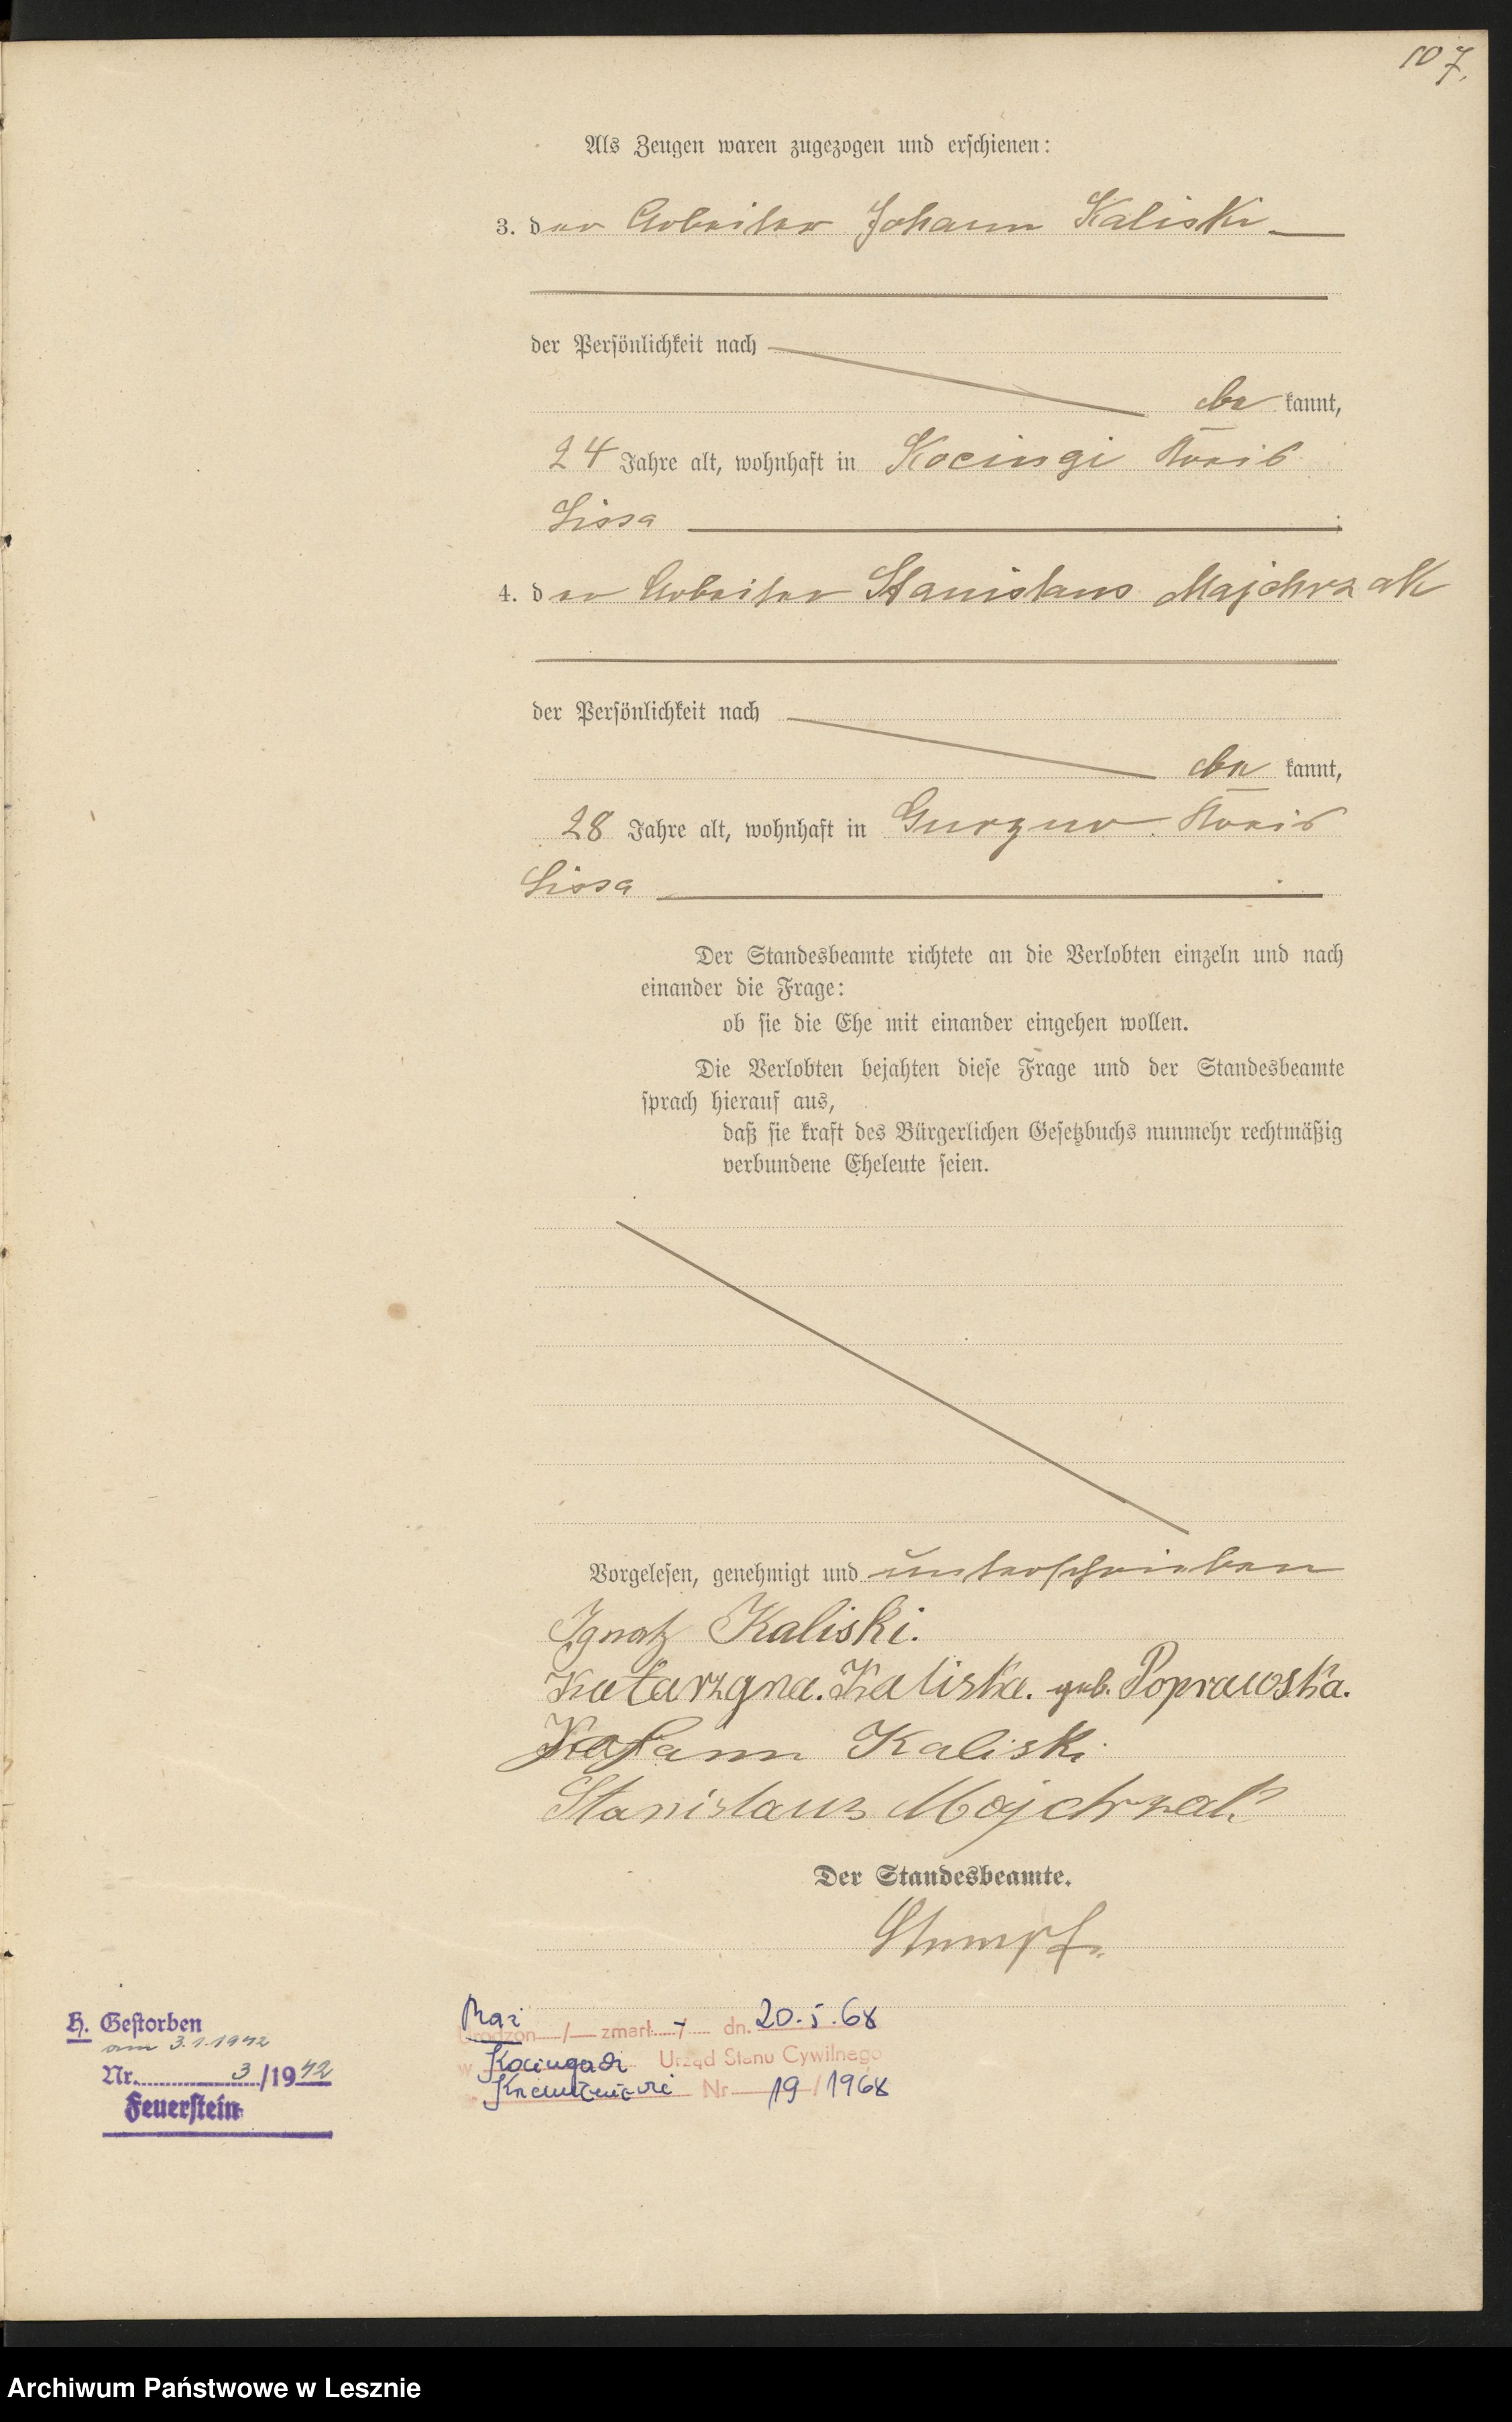 107.
Als Zeugen waren zugezogen und erschienen:
3. der Arbeiter Johann Kaliski
der Persönlichkeit nach
be kannt,
24 Jahre alt, wohnhaft in Kocingi Kreis
Lissa
4. der Arbeiter Stanislaus Majchrzak
der Persönlichkeit nach
be kannt,
28 Jahre alt, wohnhaft in Gurzno Kreis
Lissa
Der Standesbeamte richtete an die Verlobten einzeln und nach
einander die Frage:
ob sie die Ehe mit einander eingehen wollen.
Die Verlobten bejahten diese Frage und der Standesbeamte
sprach hierauf aus,
daß sie kraft des Bürgerlichen Gesetzbuchs nunmehr rechtmäßig
verbundene Eheleute seien.
Vorgelesen, genehmigt und unterschrieben
Ignatz Kaliski.
Katarzyna. Kaliska. geb. Poprawska.
Johann Kaliski
Stanislaus Majchrzak
Der Standesbeamte.
Stumpf.
H. Gestorben
am 3.1.1942
Nr. 3/1942
Feuerstein
Urodzon / zmarł dn. 20.5.68
w Kociugach Urząd Stanu Cywilnego
Krzemieniewie Nr 19/1968
Archiwum Państwowe w Lesznie